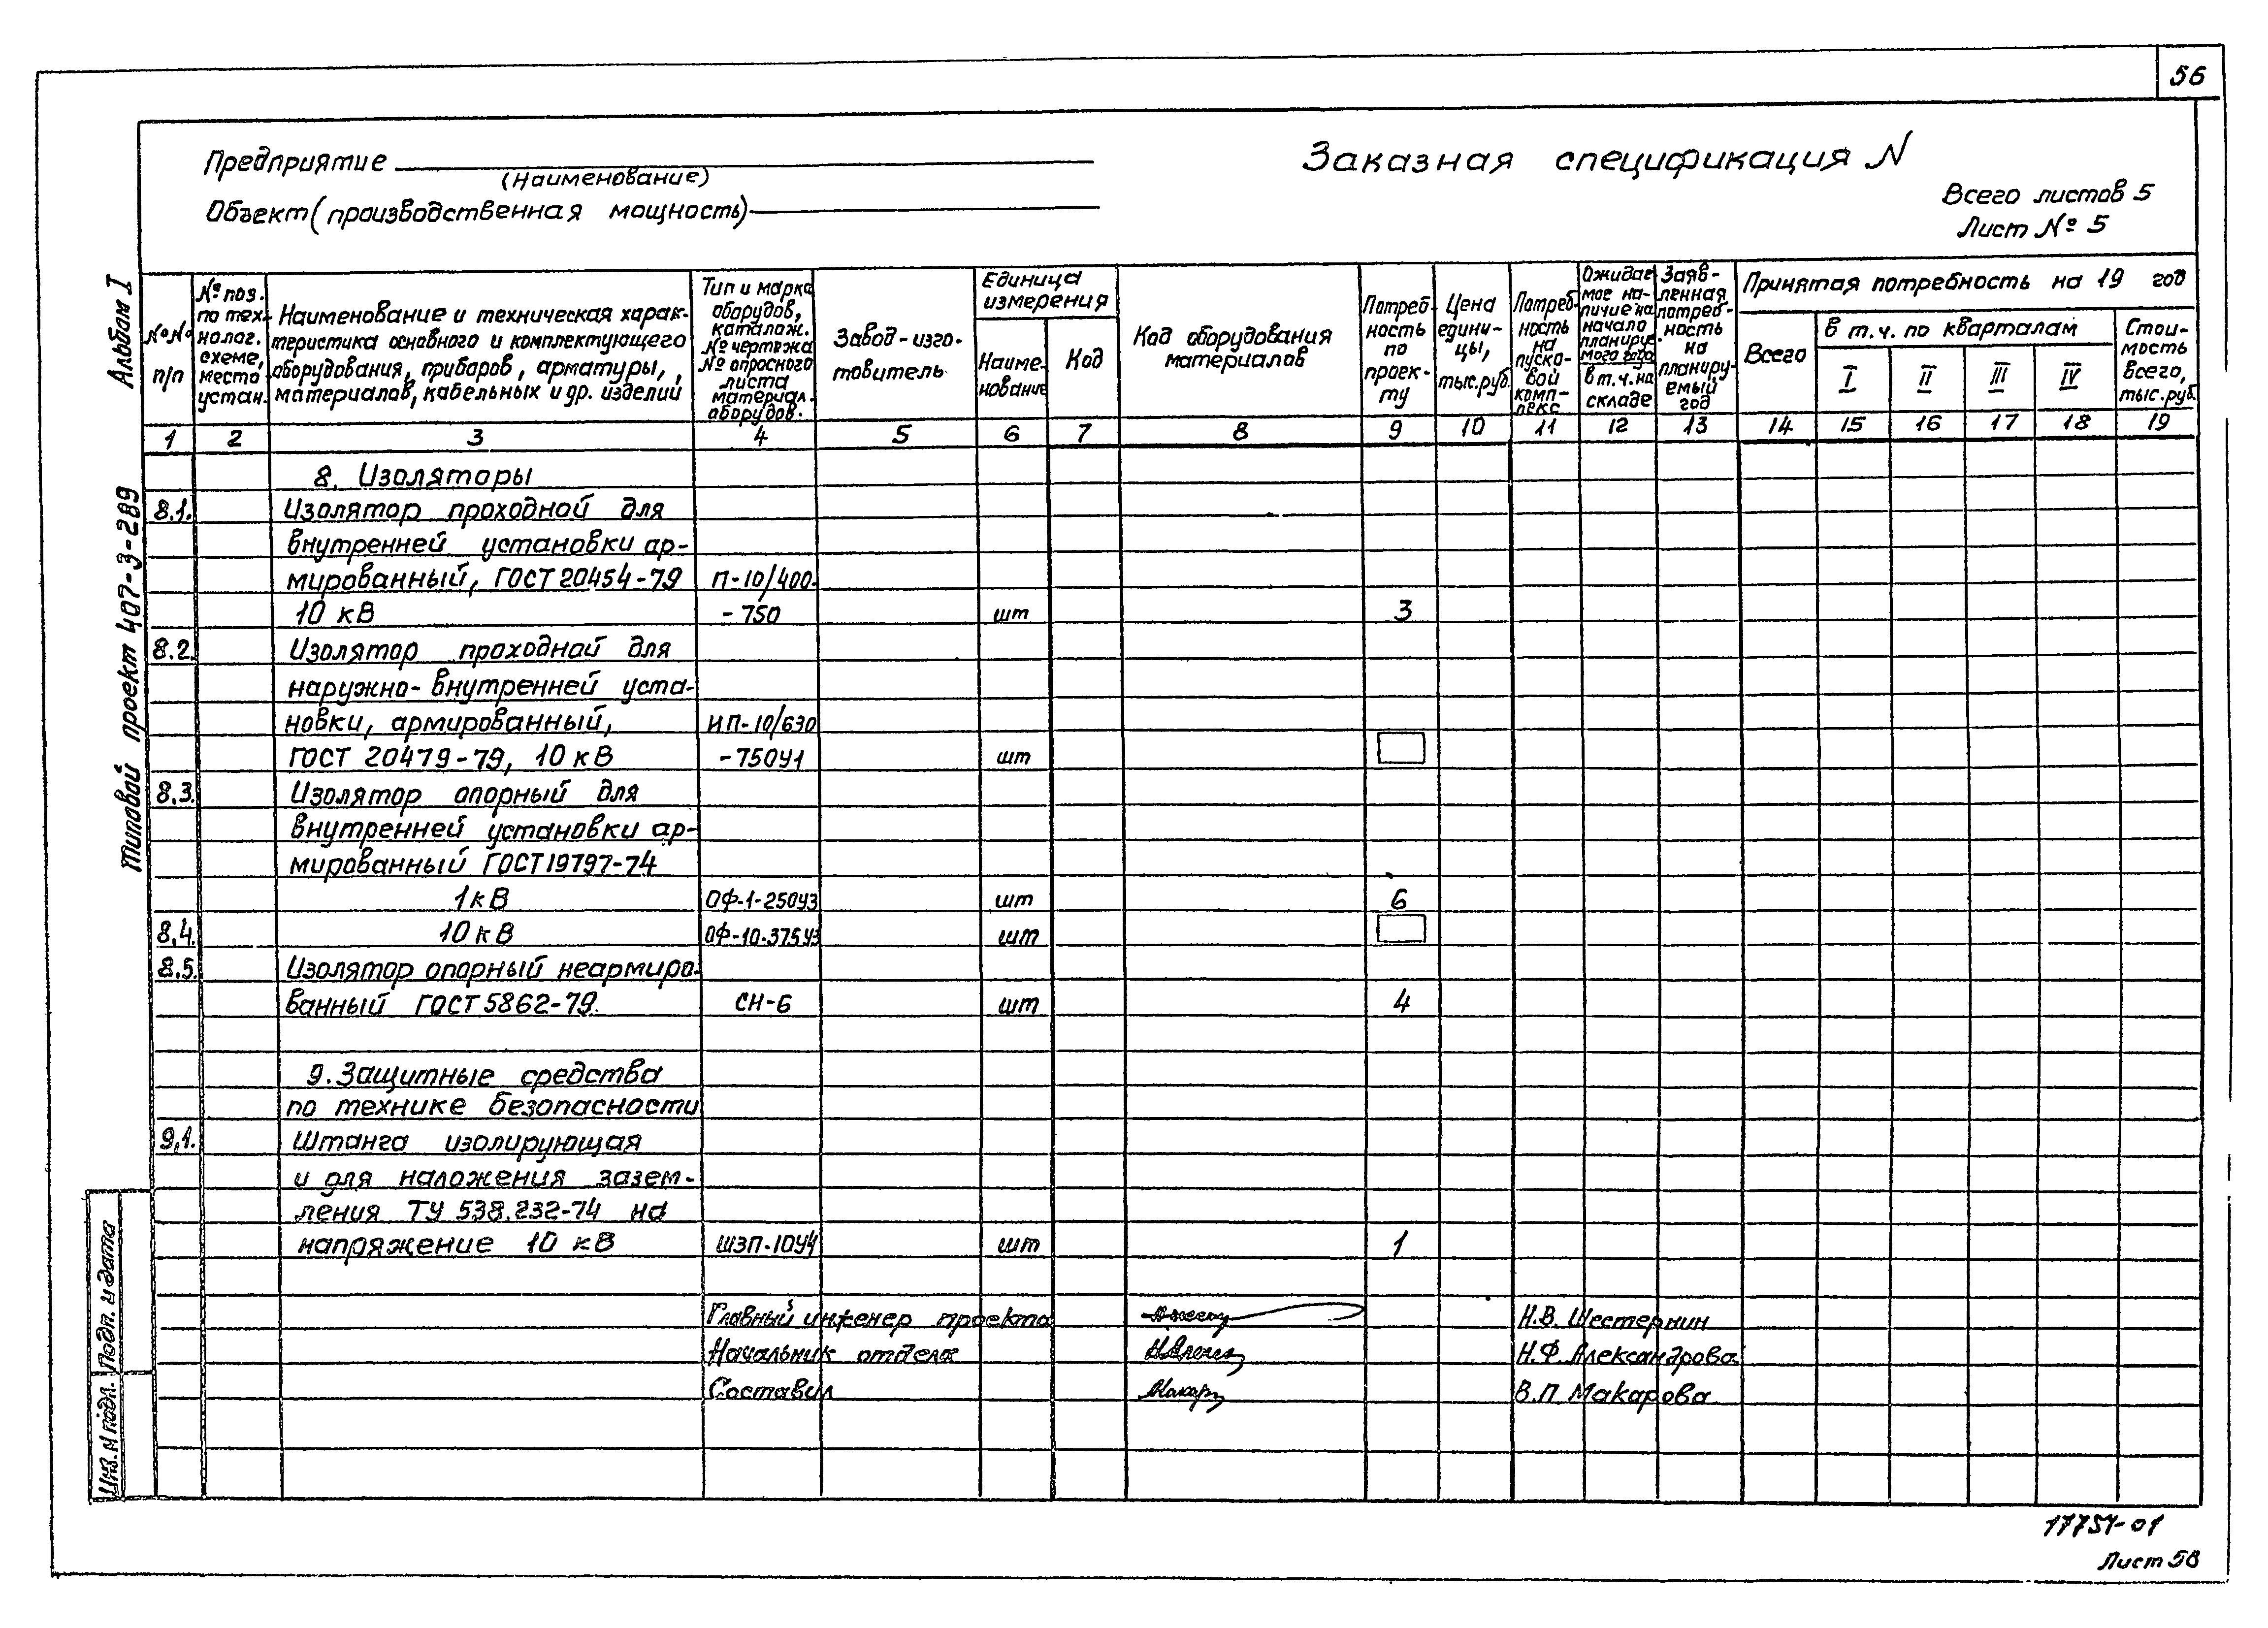 56
Предприятие
(Наименование)
Объект (производственная мощность)
Заказная спецификация N
Всего листов 5
Лист № 5
Альбом I
Типовой проект 407-3-289
№№ п/п
№ поз. по тех- нолог. схеме, место устан.
Наименование и техническая харак- теристика основного и комплектующего оборудования, приборов, арматуры, материалов, кабельных и др. изделий
Тип и марка оборудов, каталож. № чертежа № опросного листа материал. оборудов.
Завод-изго- товитель
Единица измерения
Наиме- нование
Код
Код оборудования материалов
Потреб- ность по проек- ту
Цена едини- цы, тыс.руб.
Потреб- ность на пуско- вой комп- лекс
Ожидае мое на- личие на начало планируе- мого года в т.ч. на складе
Заяв- ленная потреб- ность на планиру- емый год
Принятая потребность на 19 год
Всего
в т.ч. по кварталам
I II III IV
Стои- мость всего, тыс.руб.
1 2 3 4 5 6 7 8 9 10 11 12 13 14 15 16 17 18 19
8. Изоляторы
8.1. Изолятор проходной для
внутренней установки ар-
мированный, ГОСТ 20454-79 П-10/400-
10 кВ -750 шт 3
8.2. Изолятор проходной для
наружно-внутренней уста-
новки, армированный, ИП-10/630
ГОСТ 20479-79, 10 кВ -750У1 шт
8.3. Изолятор опорный для
внутренней установки ар-
мированный ГОСТ 19797-74
1 кВ ОФ-1-250У3 шт 6
8.4. 10 кВ ОФ-10-375У3 шт
8.5. Изолятор опорный неармиро-
ванный ГОСТ 5862-79. СН-6 шт 4
9. Защитные средства
по технике безопасности
9.1. Штанга изолирующая
и для наложения зазем-
ления ТУ 538.232-74 на
напряжение 10 кВ ШЗП-10У4 шт 1
Главный инженер проекта Н.В. Шестернин
Начальник отдела Н.Ф. Александрова
Составил В.П. Макарова
Подп. и дата
Инв. N подл.
17751-01
Лист 58